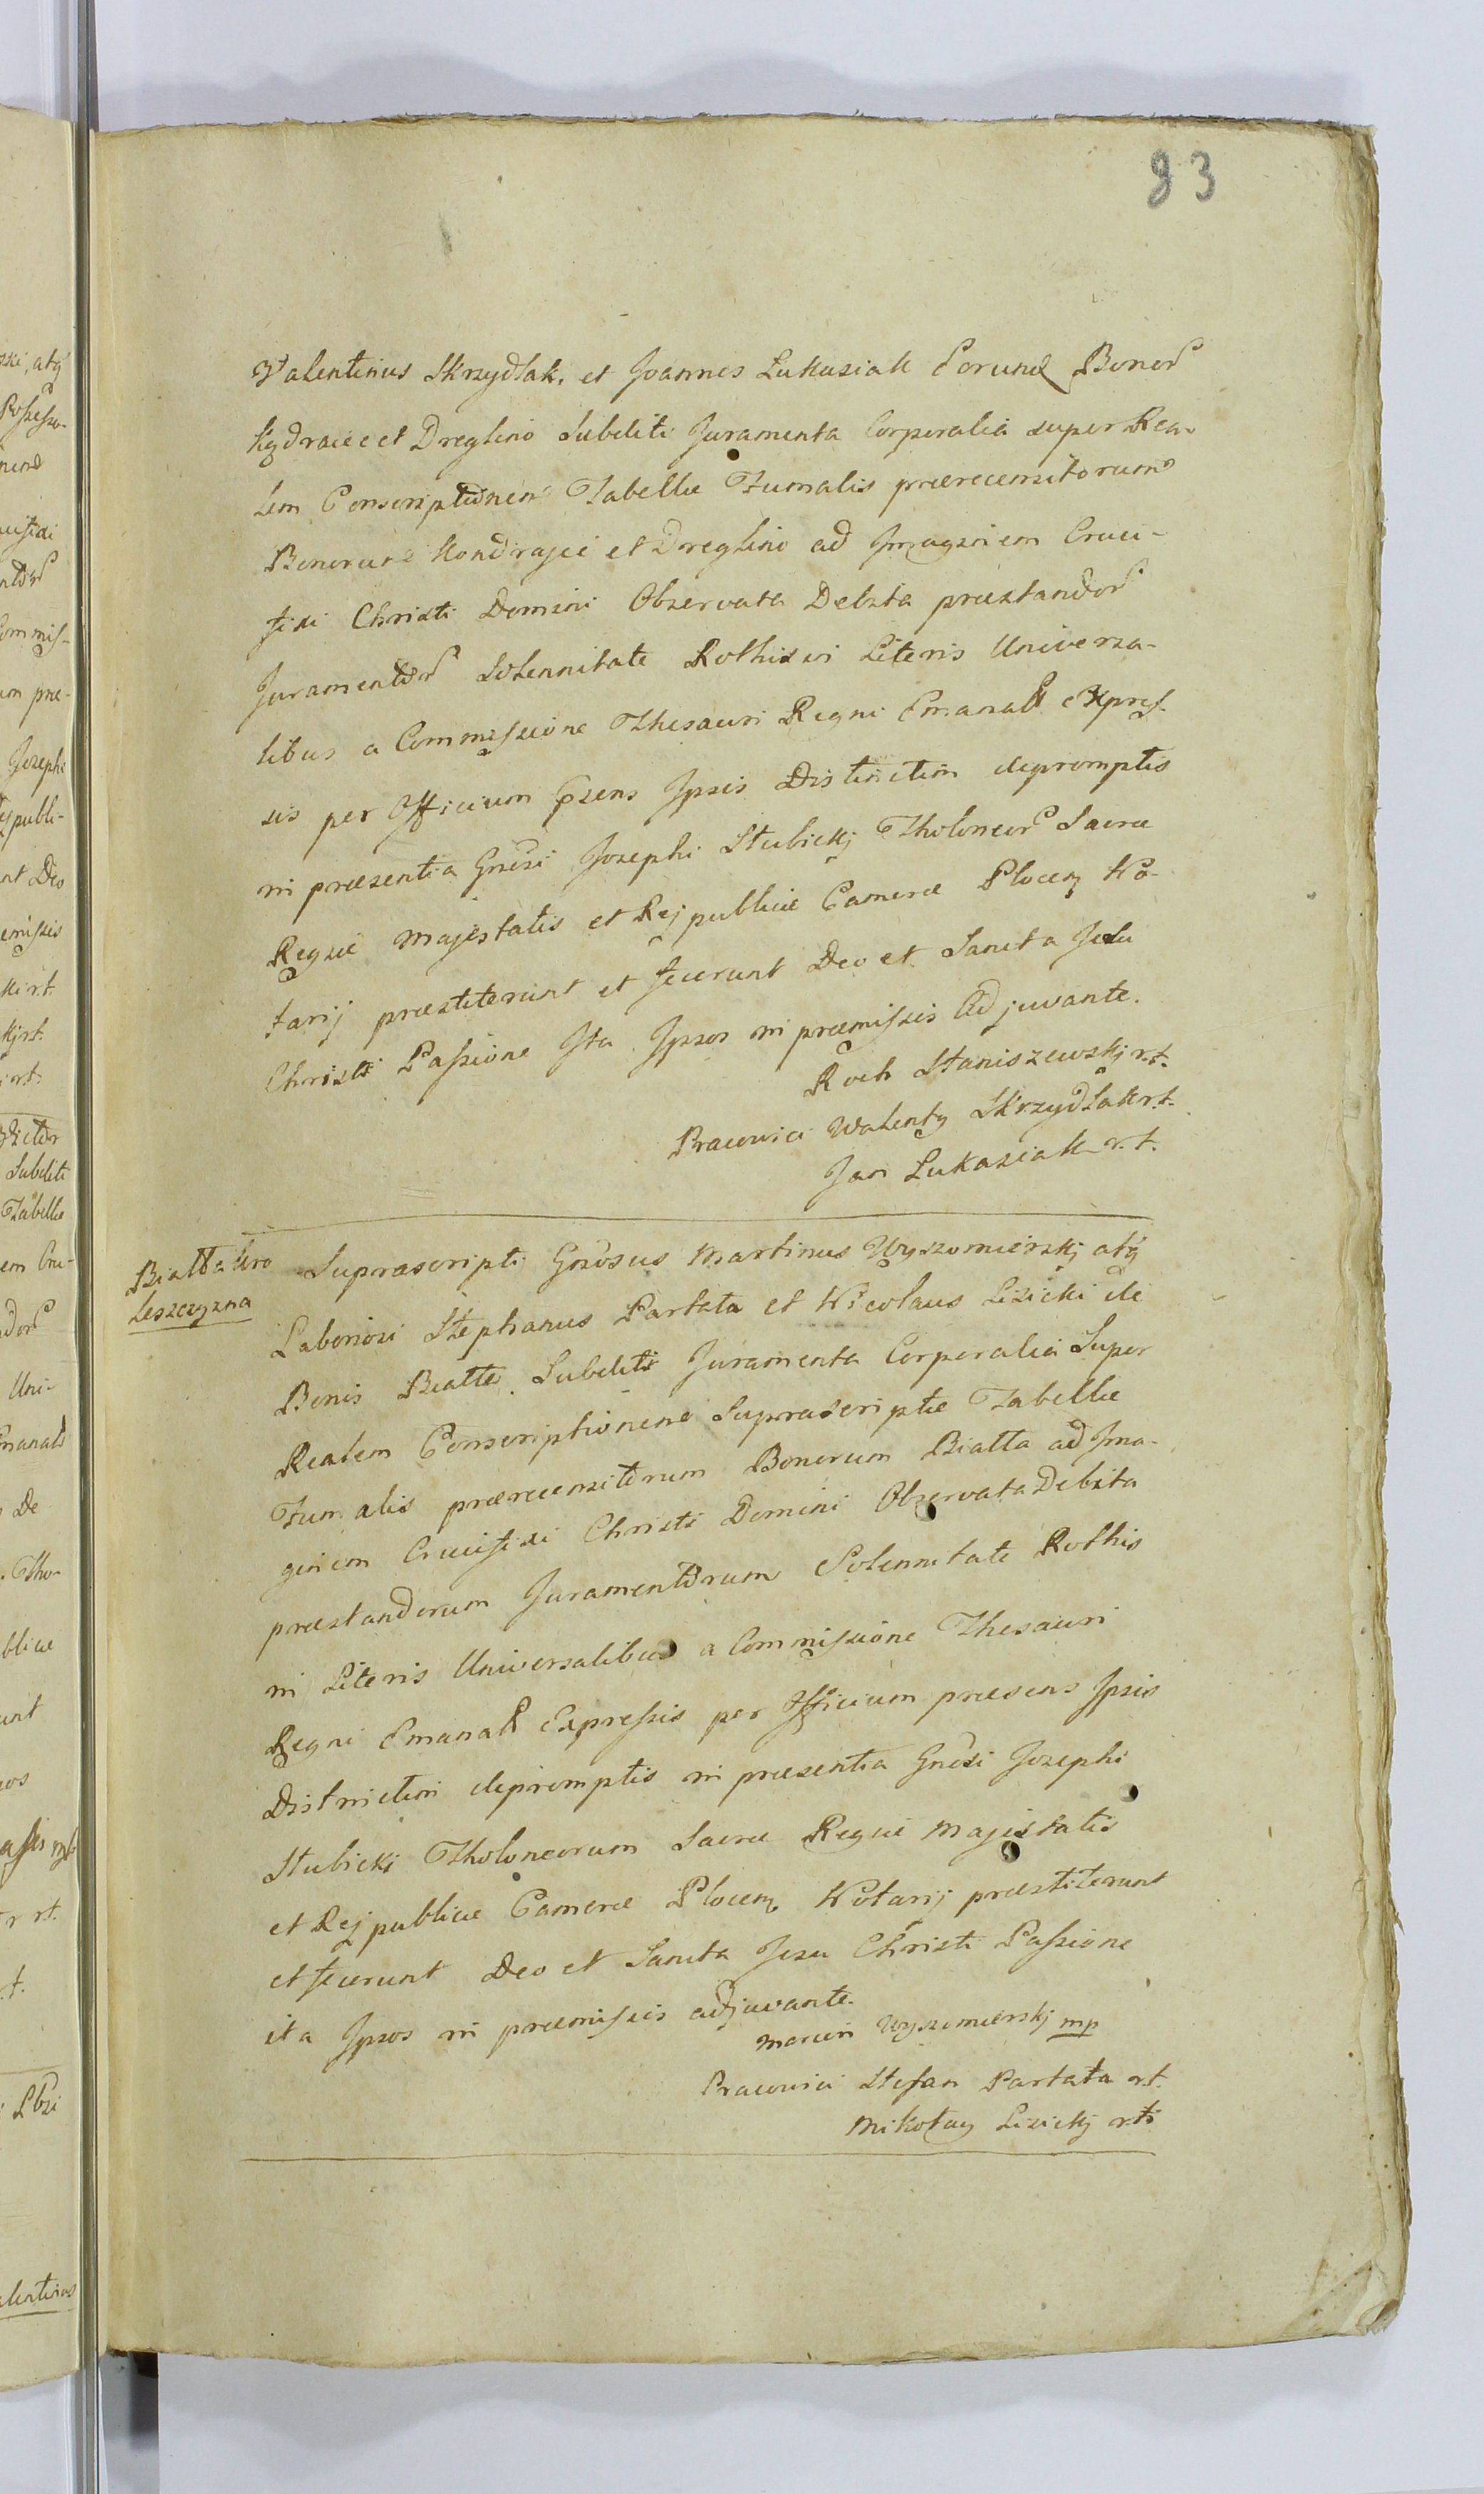 83
Valentinus Skrzydlak, et Joannes Lukasiak Eorund Bonor
Kądraiec et Dreglino Subditi Juramenta Corporalia super Rea-
lem Conscriptionem Tabellæ Fumalis prærecensitorum
Bonorum Kondrajec et Dreglino ad Imaginem Cruci-
fixi Christi Domini Observata Debita præstandor
Juramentor Solennitate Rothis in Literis Universa-
libus a Commissione Thesauri Regni Emanat Expres-
sis per Officium Præsens Ipsis Distinctim depromptis
in præsentia Gnosi Josephi Stubickj Tholoneor Sacræ
Regiæ Majestatis et Rejpublicæ Cameræ Plocen No-
tarij præstiterunt et fecerunt Deo et Sancta Jesu
Christi Passione Ita Ipsos in præmissis Adjuvante.
Roch Staniszewskj r.t.
Pracowici Walenty Skrzydlak r.t.
Jan Lukasiak r.t.
Białła
Leszczyzna
Suprascripti Gnosus Martinus Wyszomierskj atq
Laboriosi Stephanus Partata et Nicolaus Lisicki de
Bonis Białła Subditi Juramenta Corporalia Super
Realem Conscriptionem Suprascriptæ Tabellæ
Fumalis prærecensitorum Bonorum Białła ad Ima-
ginem Crucifixi Christi Domini Observata Debita
præstandorum Juramentorum Solennitate Rothis
in Literis Universalibus a Commissione Thesauri
Regni Emanat Expressis per Officium præsens Ipsis
Distinctim depromptis in præsentia Gnosi Josephi
Stubicki Tholoneorum Sacræ Regiæ Majestatis
et Rejpublicæ Cameræ Plocen Notarij præstiterunt
et fecerunt Deo et Sancta Jesu Christi Passione
ita Ipsos in præmissis adjuvante.
Marcin Wyszomierskj mp
Pracowici Stefan Partata r.t.
Mikołay Lisickj rt